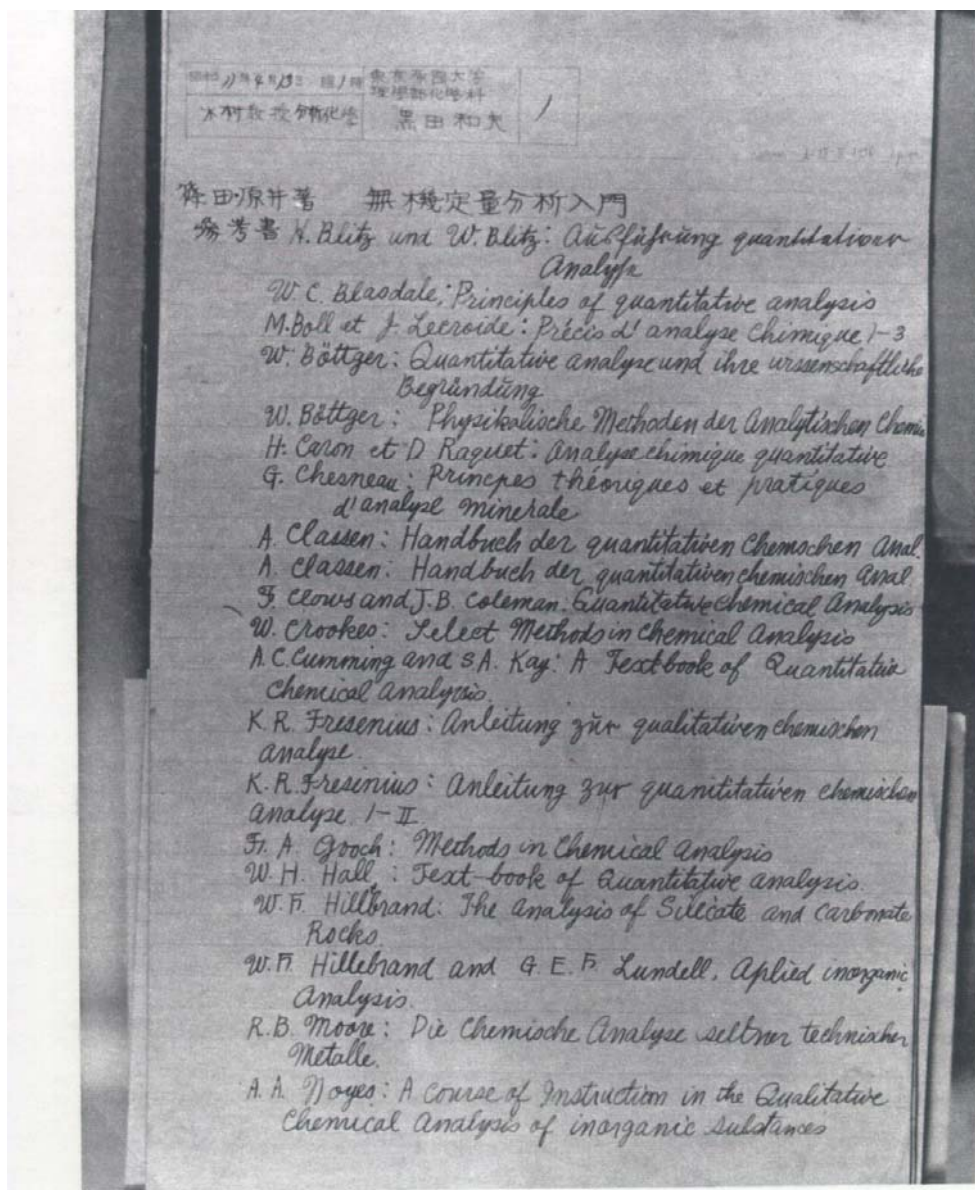 昭和11年4月13日 第1時 東京帝國大学
理學部化學科
木村教授分析化学 黒田和夫 1
篠田・原井著 無機定量分析入門
参考書 H. Blitz und W. Blitz: Ausführung quantitativer
Analyse
W. C. Blasdale; Principles of quantitative analysis
M. Boll et J. Leeroide: Précis d'analyse Chimique 1-3
W. Böttger: Quantitative analyse und ihre wissenschaftliche
Begründung
W. Böttger: Physikalische Methoden der Analytischen Chemie
H. Caron et D Raquet: Analyse chimique quantitative
G. Chesneau: Principes théoriques et pratiques
d'analyse minerale
A. Classen: Handbuch der quantitativen Chemschen Anal.
A. Classen: Handbuch der quantitativen chemischen Anal
F. Clows and J. B. Coleman. Quantitative Chemical Analysis
W. Crookes: Select Methods in Chemical Analysis
A. C. Cumming and S. A. Kay: A Textbook of Quantitative
Chemical Analysis.
K. R. Fresenius: Anleitung zur qualitativen chemischen
Analyse.
K. R. Fresinius: Anleitung zur quanititativen chemischen
Analyse. I-II
F. A. Gooch: Methods in Chemical Analysis
W. H. Hall: Text-book of Quantitative analysis.
W. F. Hillebrand: The Analysis of Silicate and Carbonate
Rocks.
W. F. Hillebrand and G. E. F. Lundell. Aplied inorganic
Analysis.
R. B. Moore: Die Chemische Analyse seltner technischer
Metalle.
A. A. Noyes: A course of Instruction in the Qualitative
Chemical Analysis of inorganic substances